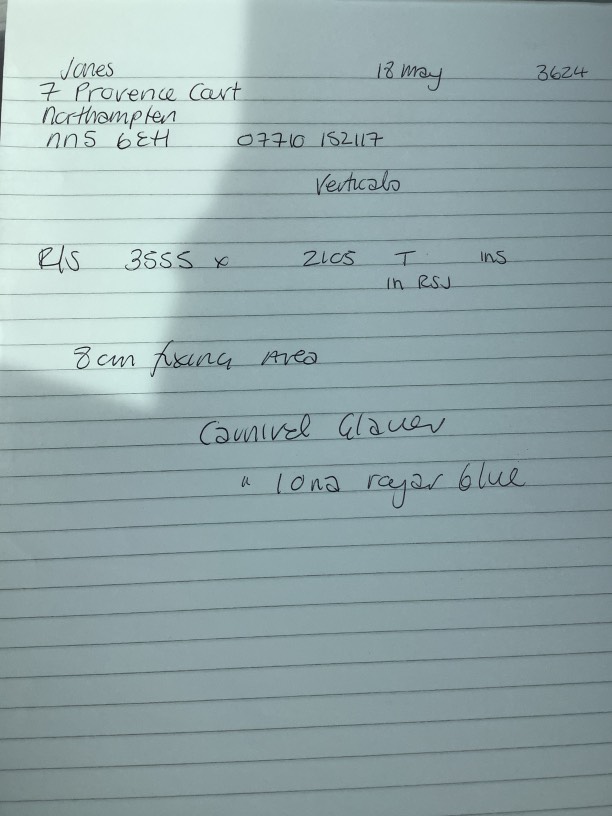 Jones 18 May 3624
7 Provence Court
Northampton
NN5 6EH 07710 152117
Verticals
R/S 3555 x 2105 T INS
IN RSJ
8cm fixing Area
Carnival Glacier
" Iona royal blue